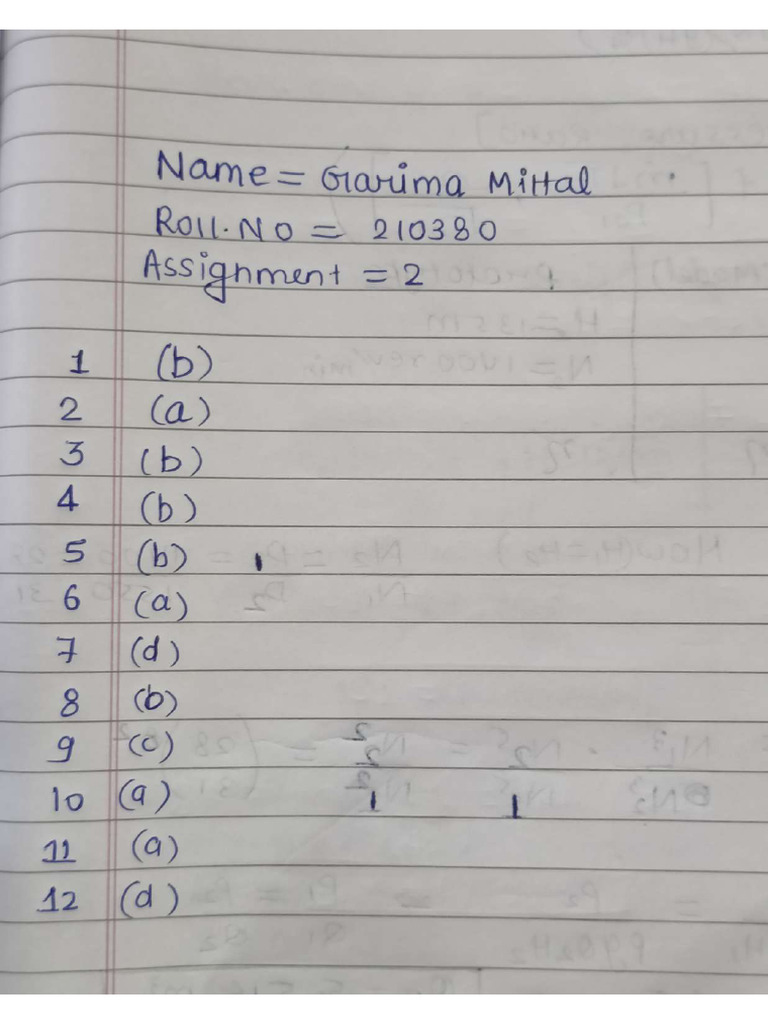 Name = Garima Mittal
Roll.No = 210380
Assignment = 2
1 (b)
2 (a)
3 (b)
4 (b)
5 (b)
6 (a)
7 (d)
8 (b)
9 (c)
10 (a)
11 (a)
12 (d)